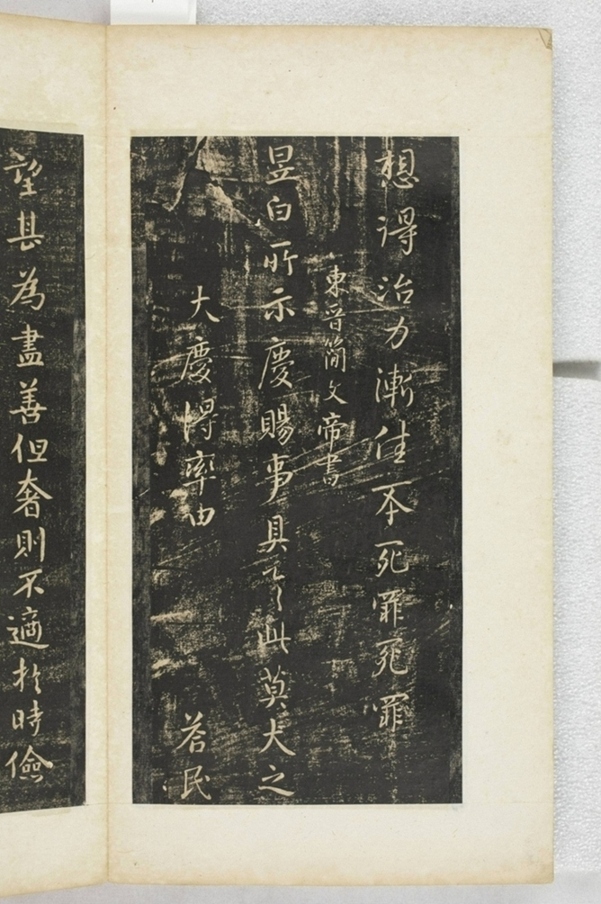 想得治力漸佳不死罪死罪
東晉簡文帝書
昱白所示慶賜事具此莫大之
大慶得率由 蒼民
望甚為盡善但奢則不適於時儉